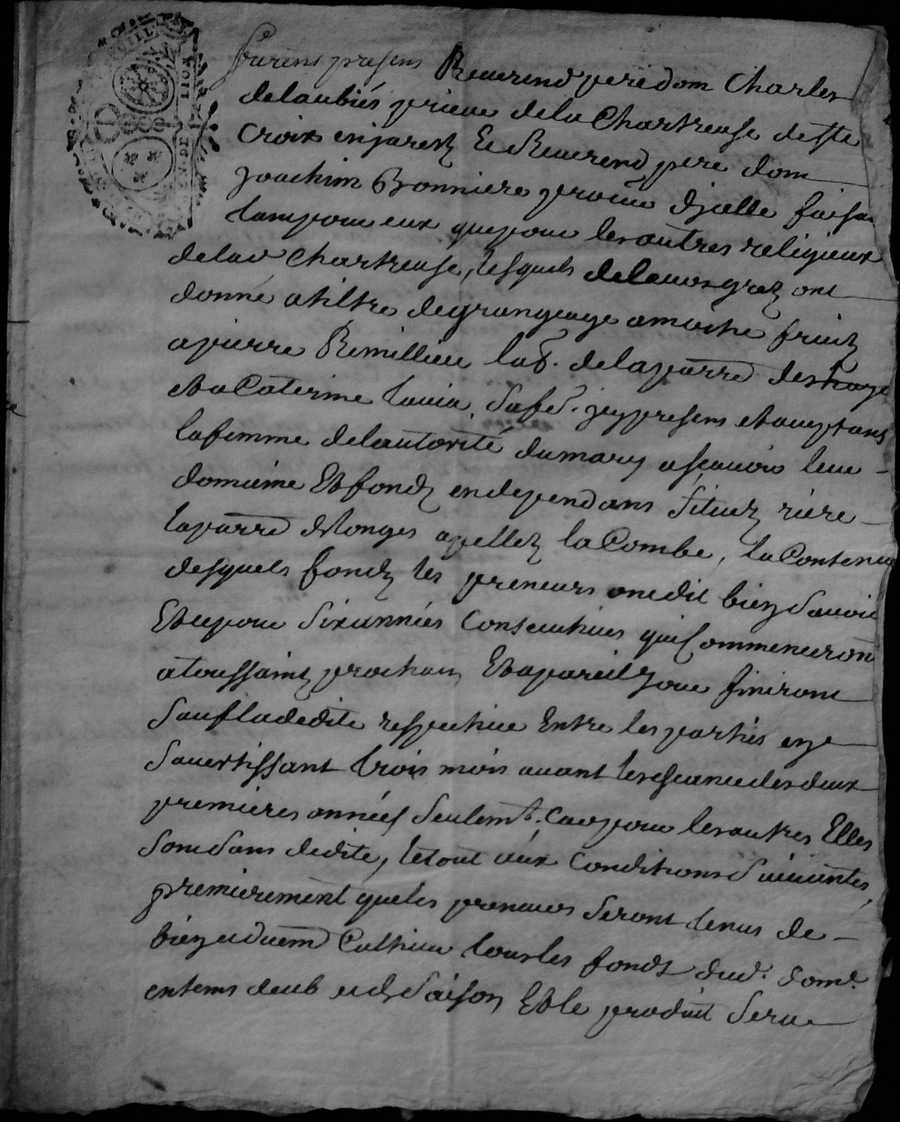 furent presens Reverend pere dom Charles
delaubiés prieur dela Chartreuse de ste
Croix en jarest Et Reverend pere dom
Joachim Bonniere procur d'jcelle faisa
tant pour eux que pour les autres religieux
de lad Chartreuse, lesquels de leurs grez ont
donné a tiltre de grangeage a moitié fruitz
a pierre Remillieu lab. de la parre des haye
Et a Caterine , sa fe. jcy presens Et acceptans
la femme de l'autorité du mary a scavoir leur
domaine Et fondz en dependans situez riere
la parre de longes appellez la Combe, la Contenue
desquels fondz les preneurs ont dit bien scavoir
Et ce pour six années Consecutives qui Commenceront
a toussaintz prochain Et a pareil jour finiront
sauf la dedite respective Entre les parties en
s'avertissant trois mois avant l'escance des deux
premieres années seulemt. Car pour les autres Elles
sont sans dedite, le tout aux Conditions suivantes,
premierement que les preneurs seront tenus de
bien et duem Cultiver tous les fondz dud. dome.
en tems deub et de saison Et le produit sera